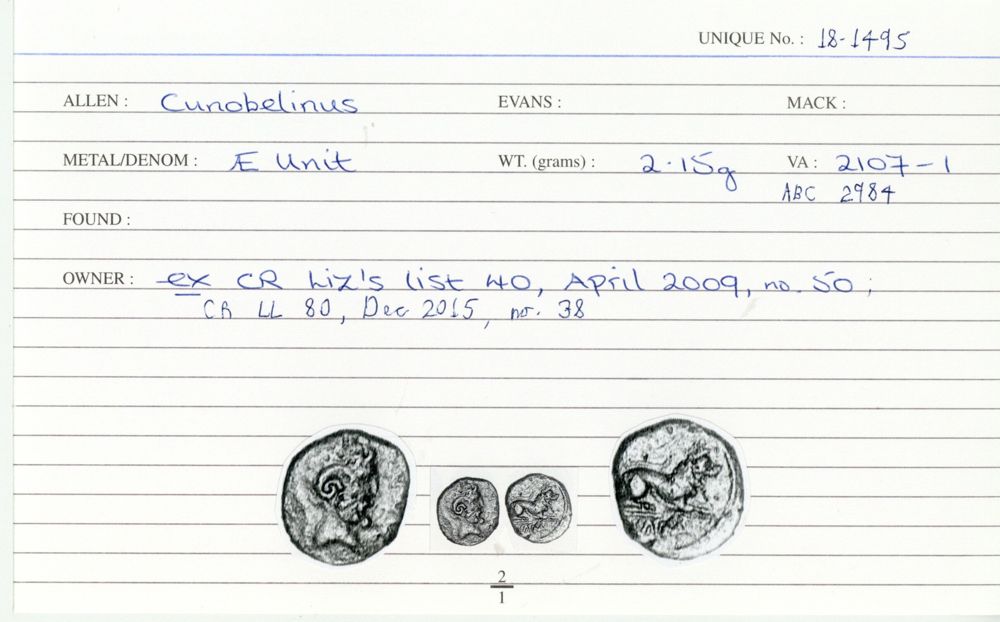 UNIQUE No. : 18-1495
ALLEN : Cunobelinus EVANS : MACK :
METAL/DENOM : Æ Unit WT. (grams) : 2.15g VA : 2107-1
ABC 2984
FOUND :
OWNER : ex CR Liz's list 40, April 2009, no. 50 ;
CR LL 80, Dec 2015, no. 38
2
1